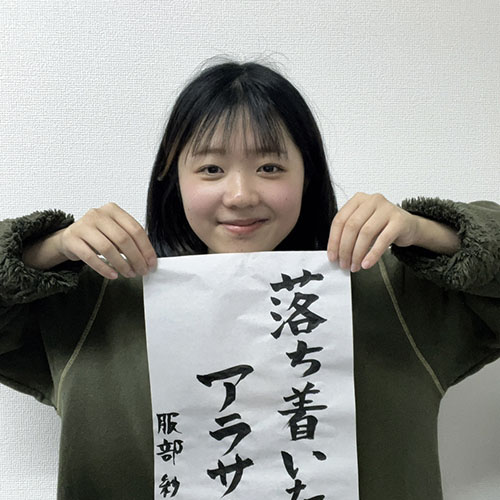 落ち着いた
アラサ
服部 紗